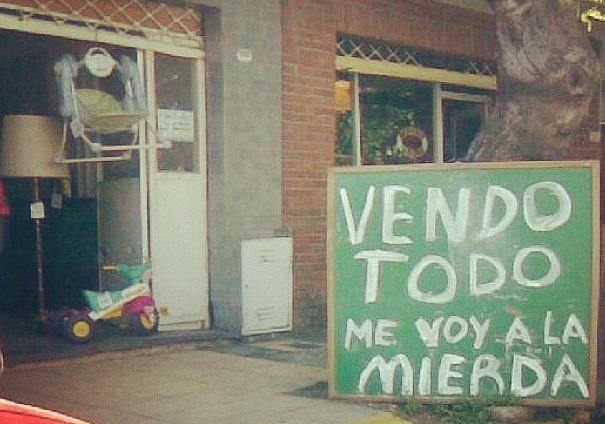 VENDO
TODO
ME VOY A LA
MIERDA